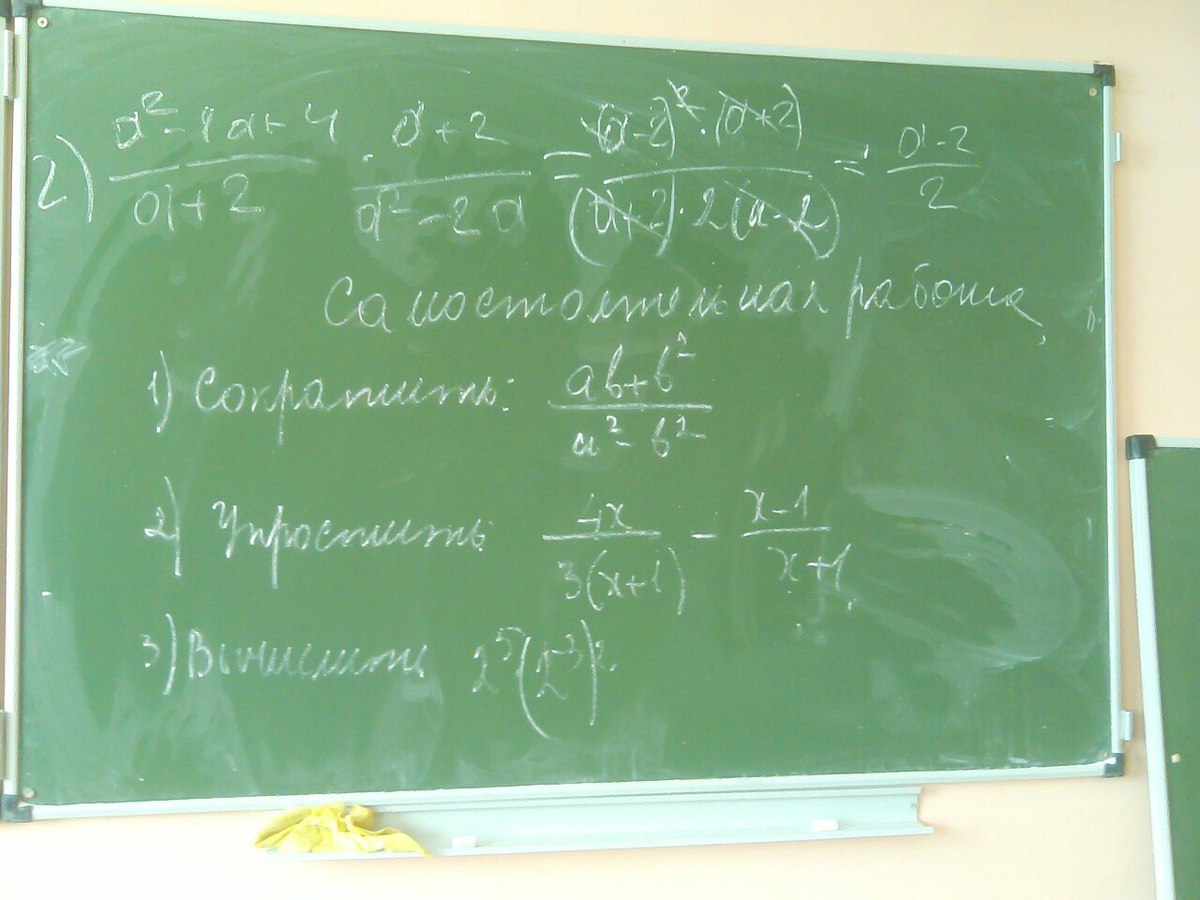 2) (a² - 4a + 4)/(a + 2) · (a + 2)/(a² - 2a) = ((a - 2)² · (a + 2))/((a + 2) · 2(a - 2)) = (a - 2)/2
Самостоятельная работа
1) Сократить: (ab + b²)/(a² - b²)
2) Упростить: 4x/(3(x + 1)) - (x - 1)/(x + 1)
3) Вычислить 2⁵(2⁻³)²